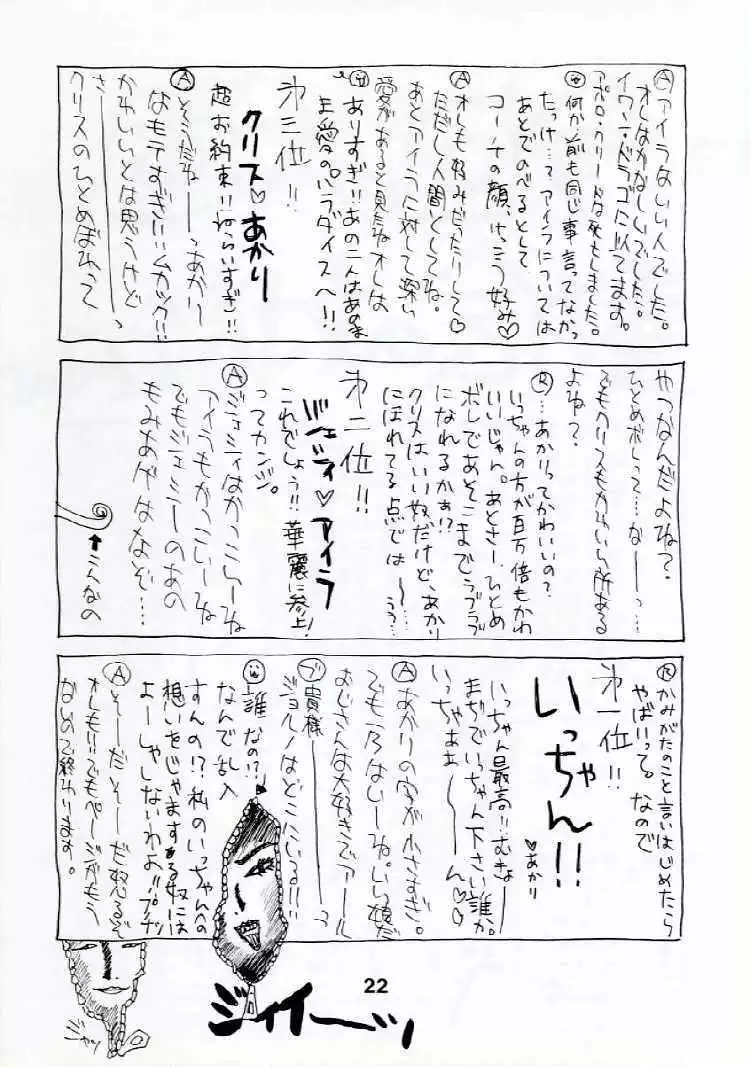 Ⓐアイラはいい人でした。
オレはかなしいでした。
イワン・ドラゴに似てます。
アポロ・クリードは死にもしました。
何か前も同じ事言ってなかっ
たっけ…？アイラについては
あとでのべるとして
コーチの顔、けっこう好み♡
Ⓐオレも好みだったりして♡
ただし人間としてね。
あとアイラに対して深い
愛があると見たねオレは
ありすぎ!!あの二人はあのま
ま愛のパラダイスへ!!
第三位!!
クリス♡あかり
超お約束!!ねらいすぎ!!
Ⓐそうだねーっあかり
なもテすぎ!!ムカック!!
さ――――っ
かわいいとは思うけど
クリスのひとめぼれって
やつなんだよね？
ひとめボレって…な――っ…
でもクリスもかわいい所ある
よね？
Ⓡ…あかりってかわいいの？
いっちゃんの方が百万倍もかわ
いいじゃん。あとさー、ひとめ
ボレであそこまでラブラブ
になれるかぁ!?
クリスはいい奴だけど、あかり
にほれてる点では――…うぅ…
第二位!!
ジェシィ♡アイラ
これでしょう!!華麗に参上!
ってカンジ。
Ⓐジェシィはかっこいーね
アイラもかっこいーね
でもジェシーのあの
もみあげはなぞ…
↑こんなの
Ⓡかみがたのこと言いはじめたら
やばいって。なので
第一位!!
いっちゃん!!
♡あかり
いっちゃん最高!!むきょ――
まぢでいっちゃん下さい誰か。
いっちゃあぁ――――ん♡♡
Ⓐあかりの字が小さすぎ。
でも一乃はいーね。いい娘だ
おじさんは大好きでアール
ブ貴様――――っ
ジョルノはどこにいる!!!
誰なの!?
なんで乱入
すんの!?私のいっちゃんへの
想いをじゃまする奴には
よーしゃしないわよ!!プンプン
Ⓐそーだそーだ怒るぞ
オレも!!でもページがもう
ないので終わります。
22
ジィイーッ
ジャッ